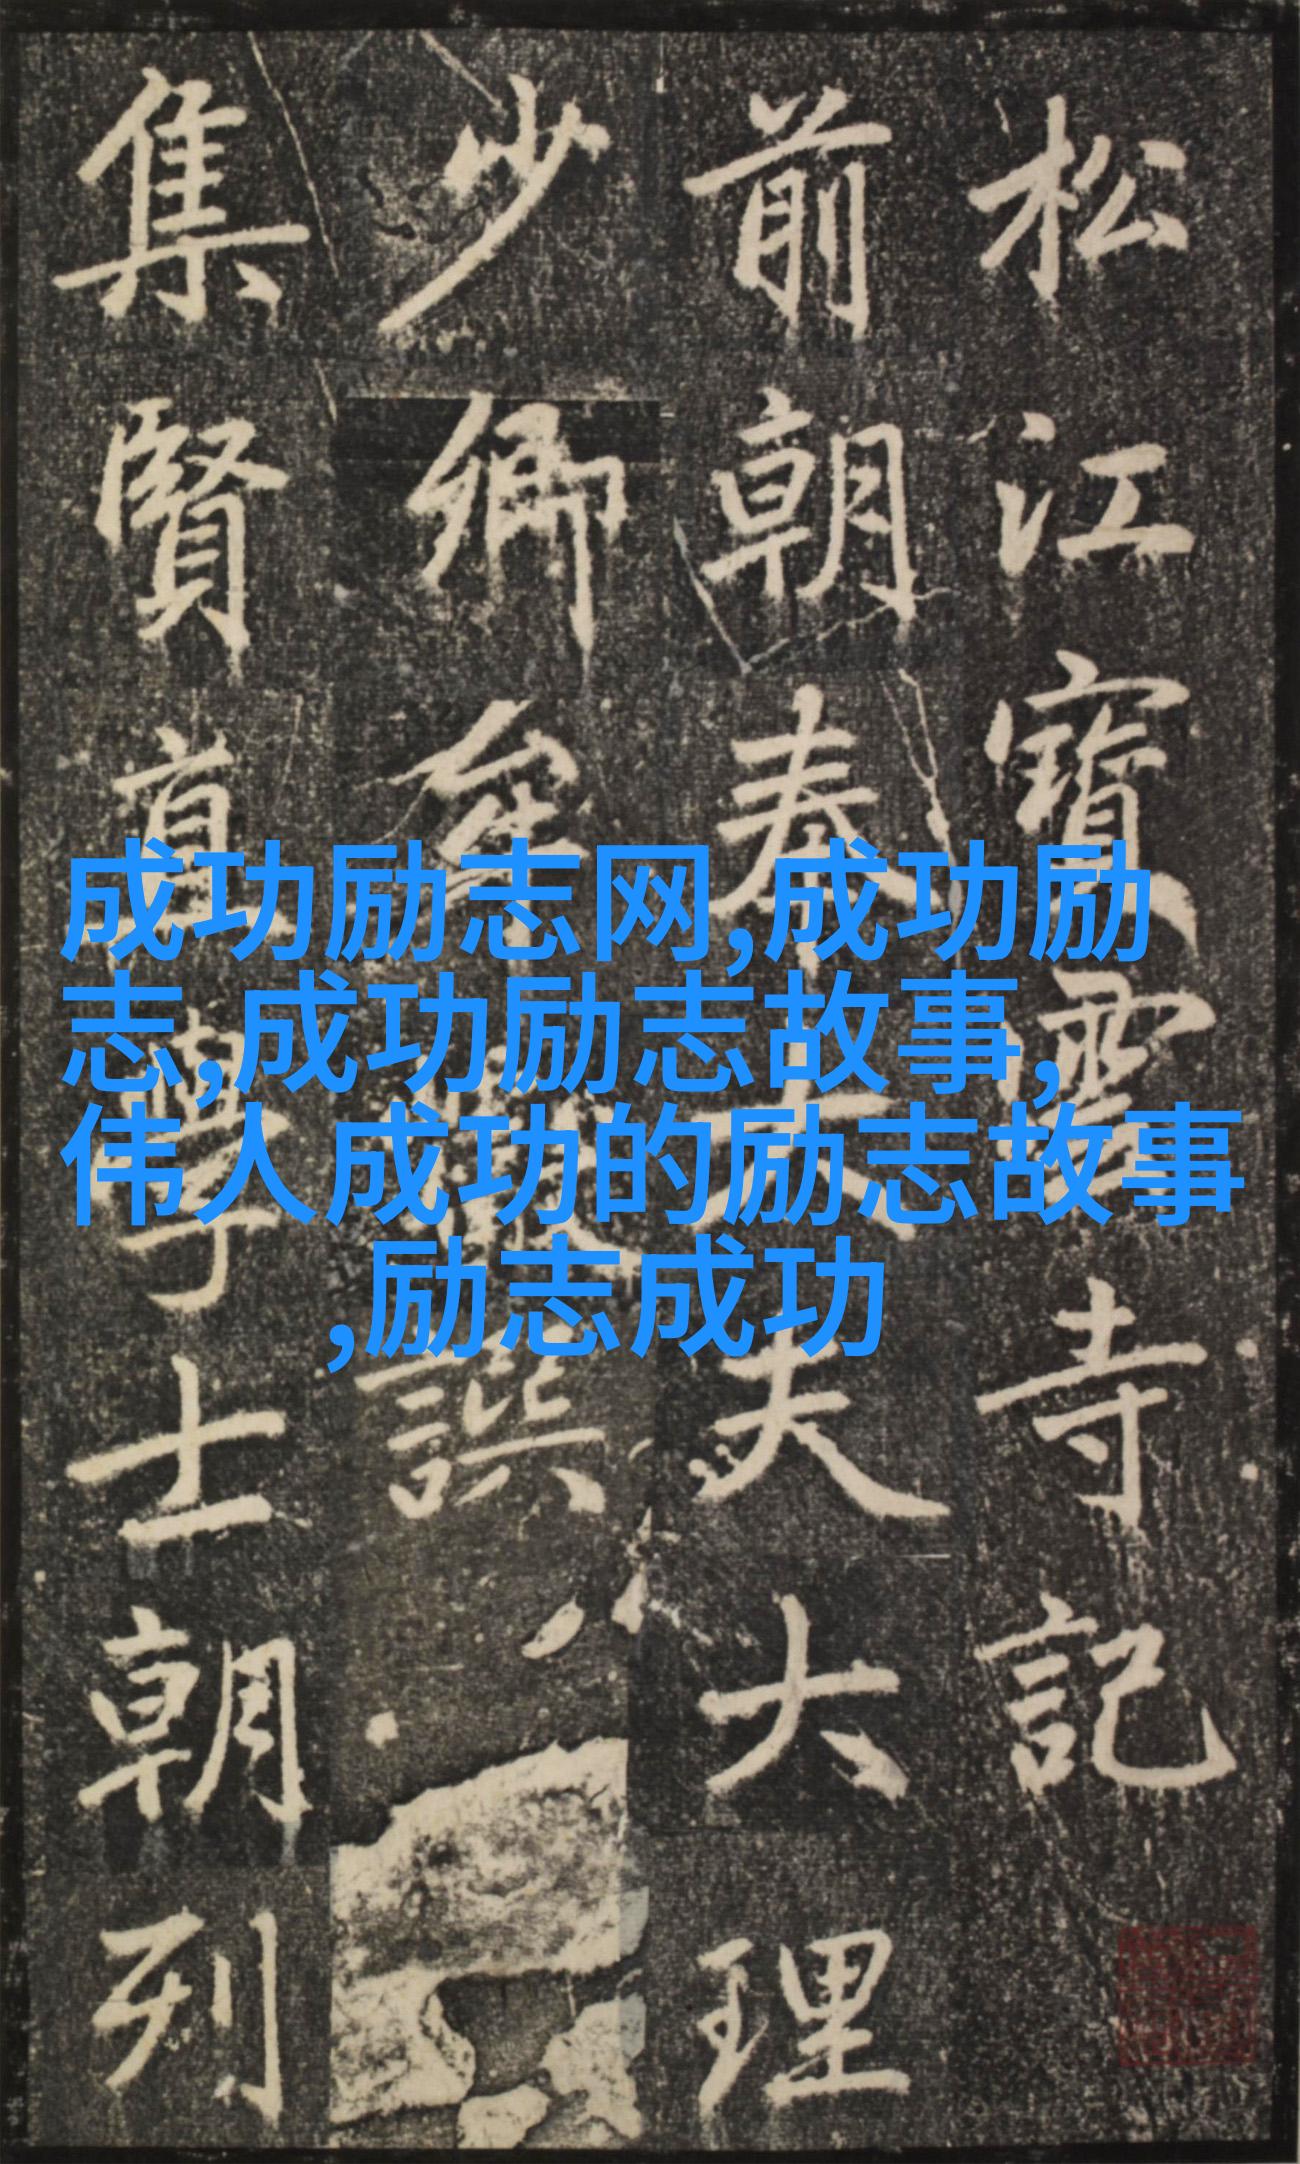 松江寶雲寺記
前朝奉大夫大理
少卿牟巘譔
集賢直學士朝列
成功励志网,成功励
志,成功励志故事,
伟人成功的励志故事
,励志成功